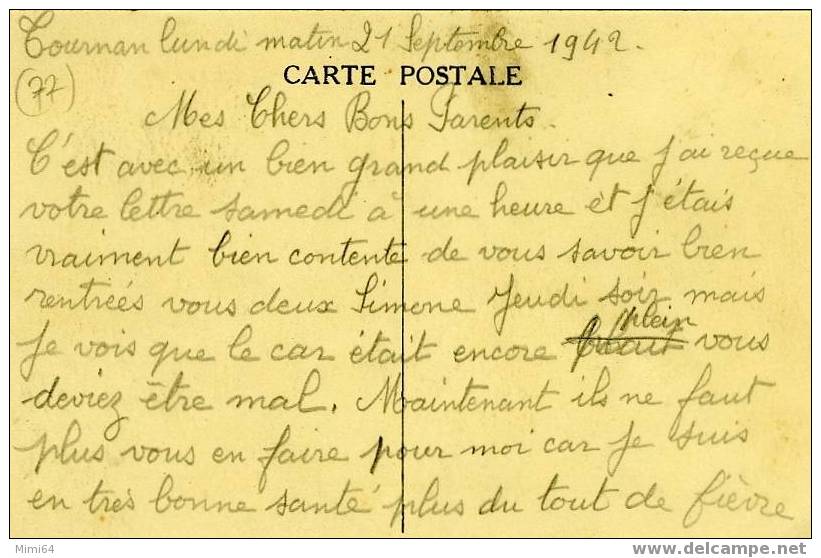 Tournan lundi matin 21 Septembre 1942.
CARTE POSTALE
(77)
Mes Chers Bons Parents.
C'est avec un bien grand plaisir que j'ai reçue
votre lettre samedi à une heure et j'étais
vraiment bien contente de vous savoir bien
rentrées vous deux Simone Jeudi soir mais
plein
je vois que le car était encore vous
deviez être mal. Maintenant ils ne faut
plus vous en faire pour moi car je suis
en très bonne santé plus du tout de fièvre
Mimi64
www.delcampe.net